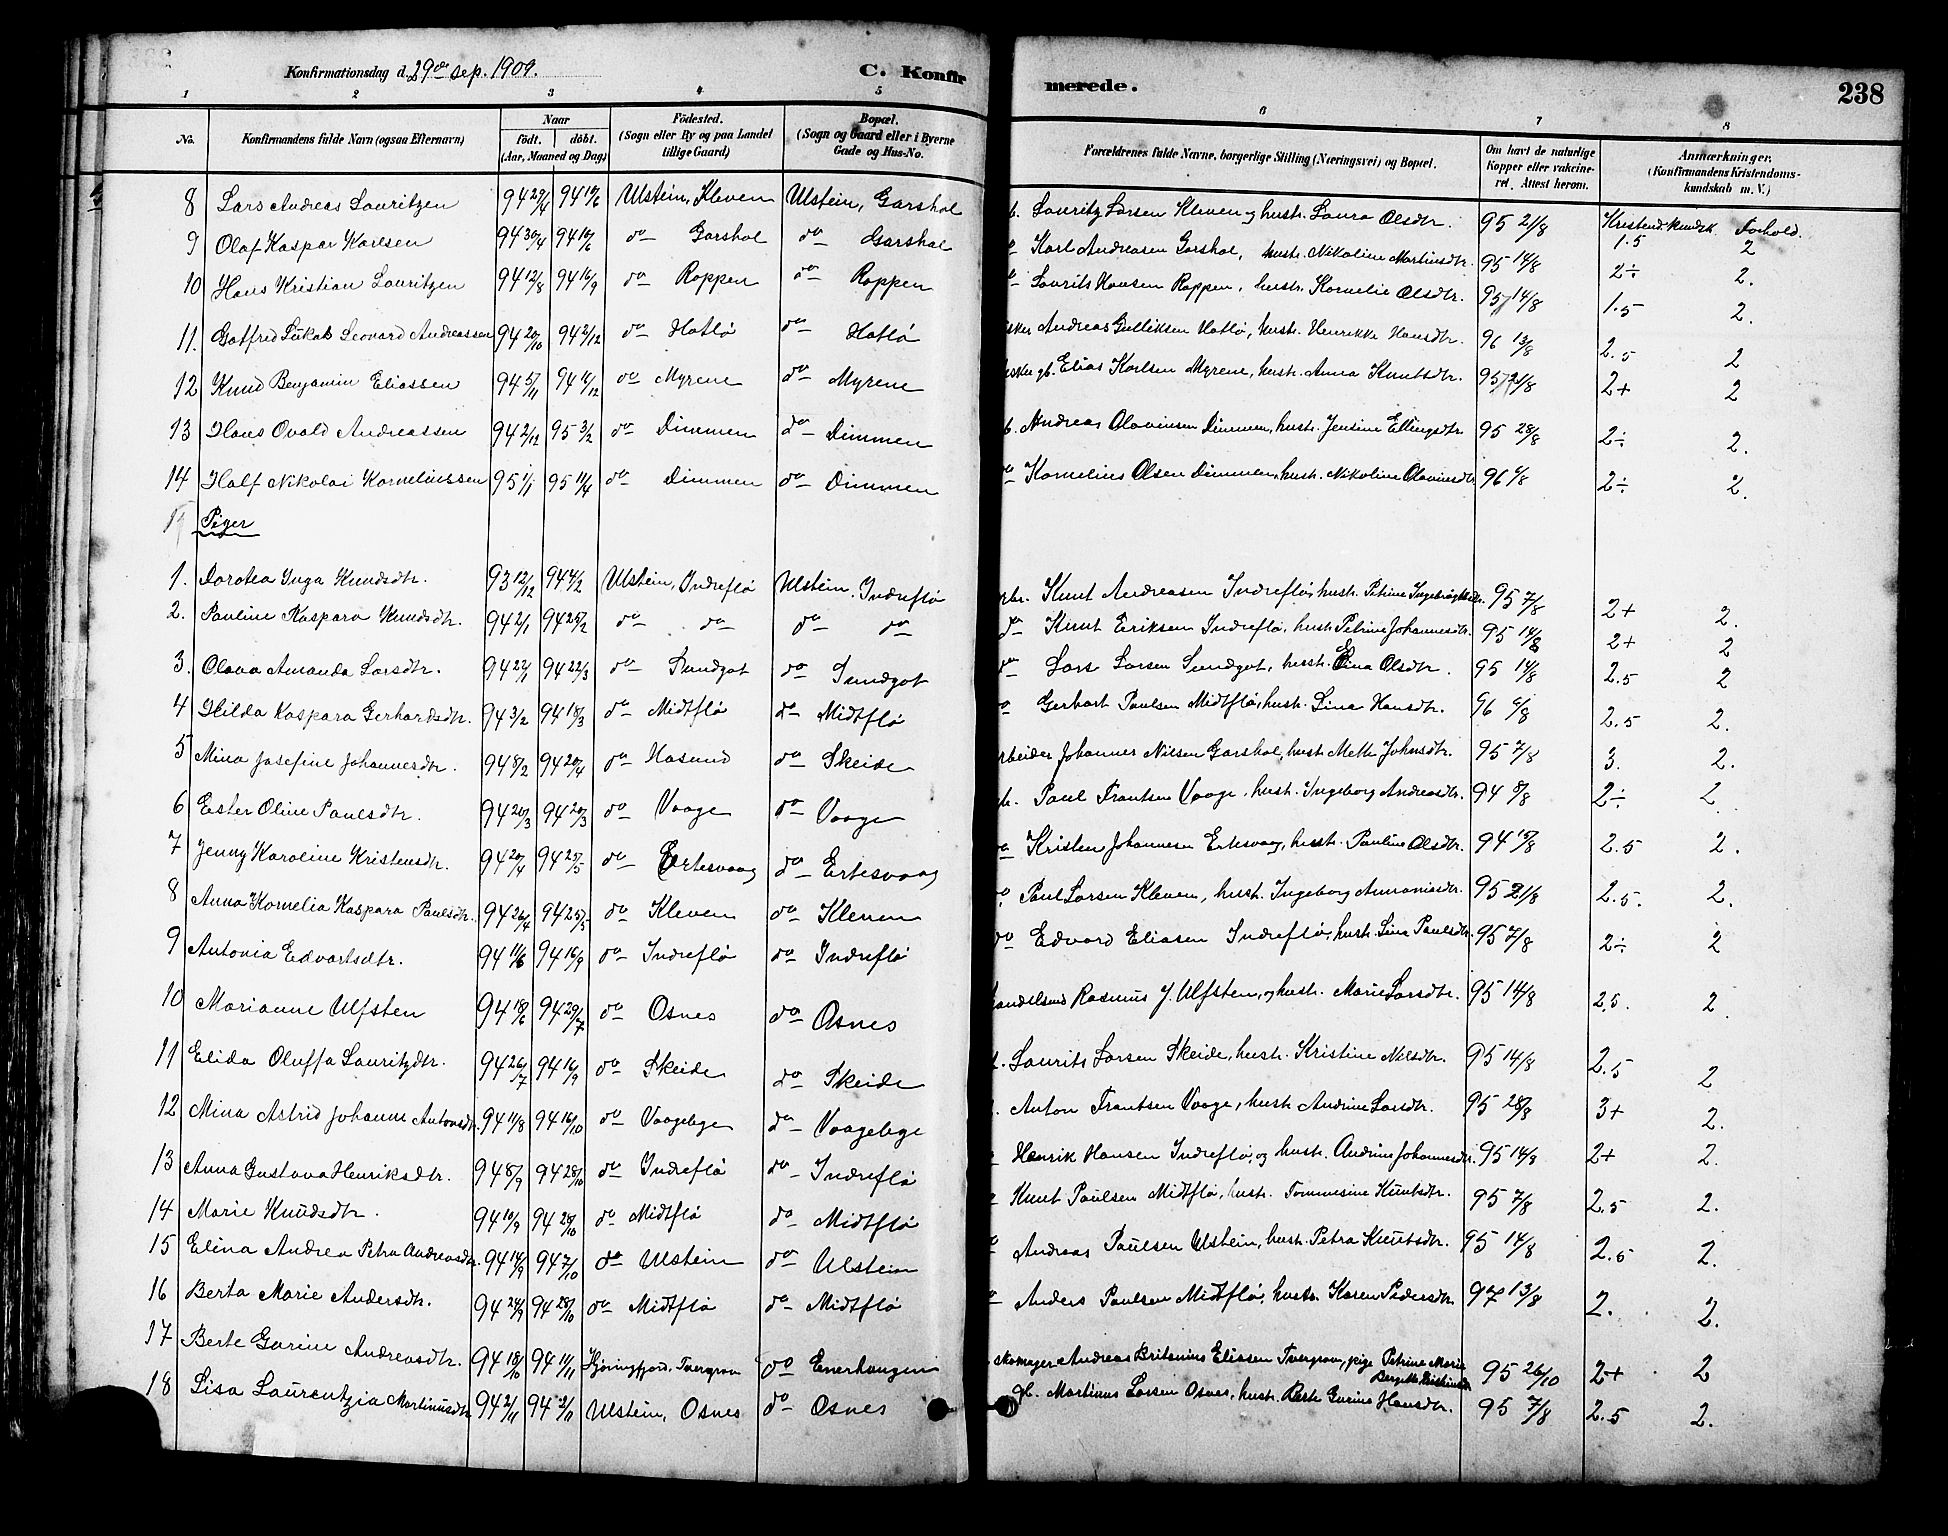 Konfirmationsdag d. 29de sep. 1909. C. Konfirmerede. 238
1 2 3 4 5 6 7 8
No. Konfirmandens fulde Navn (ogsaa Efternavn) Naar født. døbt. (Aar, Maaned og Dag) Fødested. (Sogn eller By og paa Landet tillige Gaard) Bopæl. (Sogn og Gaard eller i Byerne Gade og Hus-No. Forældrenes fulde Navne, borgerlige Stilling (Næringsvei) og Bopæl. Om havt de naturlige Kopper eller vakcineret, Attest herom. Anmærkninger. (Konfirmandens Kristendomskundskab m. V.)
Kristend. kundsk. Forhold.
8 Lars Andreas Lauritzen 94 29/4 94 17/6 Ulstein, Kleven Ulstein, Garshol Lauritz Larsen Kleven og hustr. Laura Olsdtr. 95 21/8 1.5 2
9 Olaf Kaspar Karlsen 94 30/4 94 10/6 do Garshol do Garshol Karl Andreasen Garshol, hustr. Nikoline Martinsdtr. 95 14/8 2÷ 2.
10 Hans Kristian Lauritzen 94 12/8 94 16/9 do Roppen do Roppen Laurits Hansen Roppen, hustr. Kornelie Olsdtr. 95 14/8 1.5 2.
11. Gotfred Lukas Leonard Andreassen 94 20/10 94 2/12 do Hatlø do Hatlø Andreas Gulliksen Hatlø, hustr. Henrikke Hansdtr. 96 13/8 2.5 2
12 Knud Benjamin Eliassen 94 5/11 94 16/12 do Myrene do Myrene gb. Elias Karlsen Myrene, hustr. Anna Knutsdtr. 95 21/8 2+ 2
13 Hans Ovald Andreassen 94 2/12 95 3/2 do Dimmen do Dimmen Andreas Olavinsen Dimmen, hustr. Jensine Ellingsdtr 95 28/8 2÷ 2.
14 Half Nikolai Korneliussen 95 1/1 95 11/4 do Dimmen do Dimmen do Kornelius Olsen Dimmen, hustr. Nikoline Olavinsdtr 96 6/8 2÷ 2.
Piger
1. Dorotea Inga Knudsdtr. 93 12/12 94 4/2 Ulstein, Indreflø Ulstein, Indreflø Knut Andreasen Indreflø, hustr. Petrine Ingebrigtsdtr. 95 7/8 2+ 2.
2. Pauline Kaspara Knudsdtr. 94 2/1 94 25/2 do do do do do Knut Eriksen Indreflø, hustr. Petrine Johannesdtr. 95 14/8 2+ 2
3. Olava Amanda Larsdtr. 94 22/1 94 22/3 do Sundgot do Sundgot do Lars Larsen Sundgot, hustr. Lina Olsdtr. 95 14/8 2.5 2
4 Hilda Kaspara Gerhardsdtr. 94 3/2 94 18/3 do Midtflø do Midtflø Gerhart Paulsen Midtflø, hustr. Lina Hansdtr. 96 6/8 2.5 2.
5 Mina Josefine Johannesdtr. 94 8/2 94 20/4 do Hasund do Skeide arbeider Johannes Nilsen Garshol, hust. Mette Johnsdtr. 95 7/8 3. 2.
6 Ester Oline Paulsdtr. 94 20/3 94 20/3 do Vaage do Vaage Paul Frantsen Vaage, hustr. Ingeborg Andreasdtr. 94 8/8 2÷ 2
7 Jenny Karoline Kristensdtr. 94 20/4 94 25/5 do Ertesvaag do Ertesvaag do Kristen Johannesen Ertesvaag, hustr. Pauline Olsdtr. 94 15/8 2.5 2.
8 Anna Kornelia Kaspara Paulsdtr. 94 26/4 94 25/5 do Kleven do Kleven do Paul Larsen Kleven, hustr. Ingeborg Annaniasdtr. 95 21/8 2.5. 2.
9 Antonia Edvartsdtr. 94 11/6 94 16/9 do Indreflø do Indreflø do Edvard Eliasen Indreflø, hustr. Lina Paulsdtr. 95 7/8 2÷ 2
10 Marianne Ulfsten 94 18/6 94 29/7 do Osnes do Osnes Rasmus J. Ulfsten, og hustr. Marie Larsdtr. 95 14/8 2.5. 2.
11 Elida Oluffa Lauritzdtr. 94 26/7 94 16/9 do Skeide do Skeide Laurits Larsen Skeide, hustr. Kristine Nilsdtr. 95 14/8 2.5 2
12 Mina Astrid Johanne Antonsdtr 94 11/8 94 16/10 do Vaagelege do Vaagelege Anton Frantsen Vaage, hustr. Andrine Larsdtr. 95 28/8 3+ 2.
13 Anna Gustava Henriksdtr. 94 8/9 94 28/10 do Indreflø do Indreflø Henrik Hansen Indreflø, og hustr. Andrine Johannesdtr. 95 14/8 2+ 2.
14 Marie Knudsdtr. 94 10/9 94 28/10 do Midtflø do Midtflø Knut Paulsen Midtflø, hustr. Tommesine Knutsdtr. 95 7/8 2.5 2.
15 Elina Andrea Petra Andreasdtr. 94 14/9 94 7/10 do Ulstein do Ulstein Andreas Paulsen Ulstein, hustr. Petra Knutsdtr. 95 14/8 2.5 2.
16 Berta Marie Andersdtr. 94 24/9 94 28/10 do Midtflø do Midtflø Anders Paulsen Midtflø, hustr. Karen Pedersdtr. 97 13/8 2. 2.
17 Berte Gurine Andreasdtr. 94 18/10 94 11/11 Hjøringfjord, Tvergrov do Enerhaugen skomager Andreas Britanius Eliasen Tvergrov, pige Petrine Marie 95 26/10 2+ 2
18 Lisa Laurentzia Martinusdtr 94 2/11 94 2/11 Ulstein, Osnes do Osnes gb. Martinus Larsen Osnes, hustr. Berte Gurine Hansdtr. 95 7/8 2.5 2.